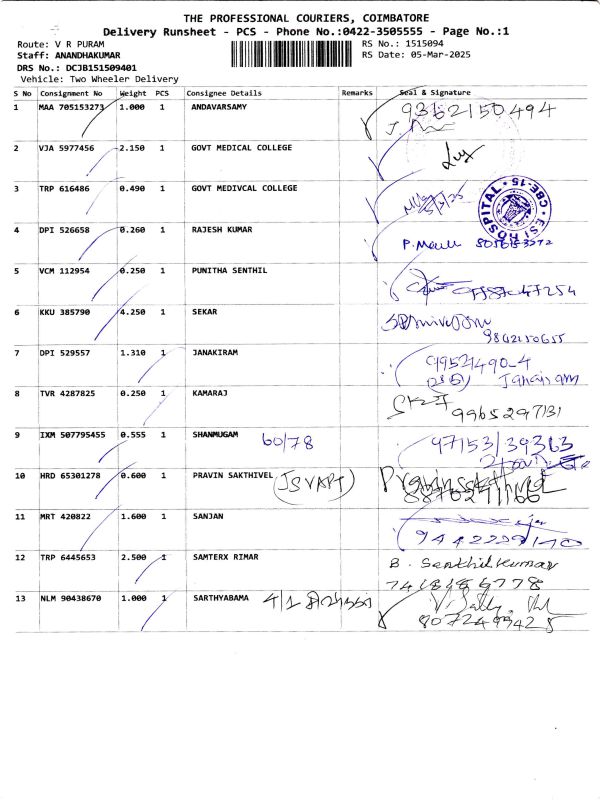 THE PROFESSIONAL COURIERS, COIMBATORE
Delivery Runsheet - PCS - Phone No.:0422-3505555 - Page No.:1
Route: V R PURAM RS No.: 1515094
Staff: ANANDHAKUMAR RS Date: 05-Mar-2025
DRS No.: DCJB151509401
Vehicle: Two Wheeler Delivery
S No Consignment No Weight PCS Consignee Details Remarks Seal & Signature
1 MAA 705153273 1.000 1 ANDAVARSAMY 9362150494
2 VJA 5977456 2.150 1 GOVT MEDICAL COLLEGE
3 TRP 616486 0.490 1 GOVT MEDIVCAL COLLEGE 5/3/25
ESI HOSPITAL CBE-15
4 DPI 526658 0.260 1 RAJESH KUMAR
5 VCM 112954 0.250 1 PUNITHA SENTHIL
6 KKU 385790 4.250 1 SEKAR
9862150655
7 DPI 529557 1.310 1 JANAKIRAM
8 TVR 4287825 0.250 1 KAMARAJ
9965297131
9 IXM 507795455 0.555 1 SHANMUGAM 60/78 97153/39363
10 HRD 65301278 0.600 1 PRAVIN SAKTHIVEL
11 MRT 420822 1.600 1 SANJAN
12 TRP 6445653 2.500 1 SAMTERX RIMAR B. Senthil kumar
13 NLM 90438670 1.000 1 SARTHYABAMA 4/1